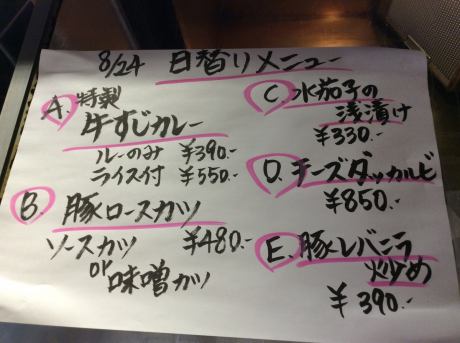 8/24 日替りメニュー
A. 特製
牛すじカレー
ルーのみ ¥390.-
ライス付 ¥550.-
B. 豚ロースカツ
ソースカツ ¥480.-
or
味噌カツ
C. 水茄子の
浅漬け
¥330.-
D. チーズダッカルビ
¥850.-
E. 豚レバニラ
炒め
¥390.-